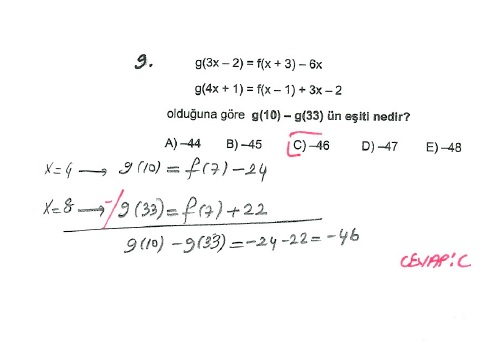 9. g(3x – 2) = f(x + 3) – 6x
g(4x + 1) = f(x – 1) + 3x – 2
olduğuna göre g(10) – g(33) ün eşiti nedir?
A) –44 B) –45 C) –46 D) –47 E) –48
x=4 → g(10) = f(7) – 24
x=8 → –/g(33) = f(7) + 22
g(10) – g(33) = –24 – 22 = –46
CEVAP: C